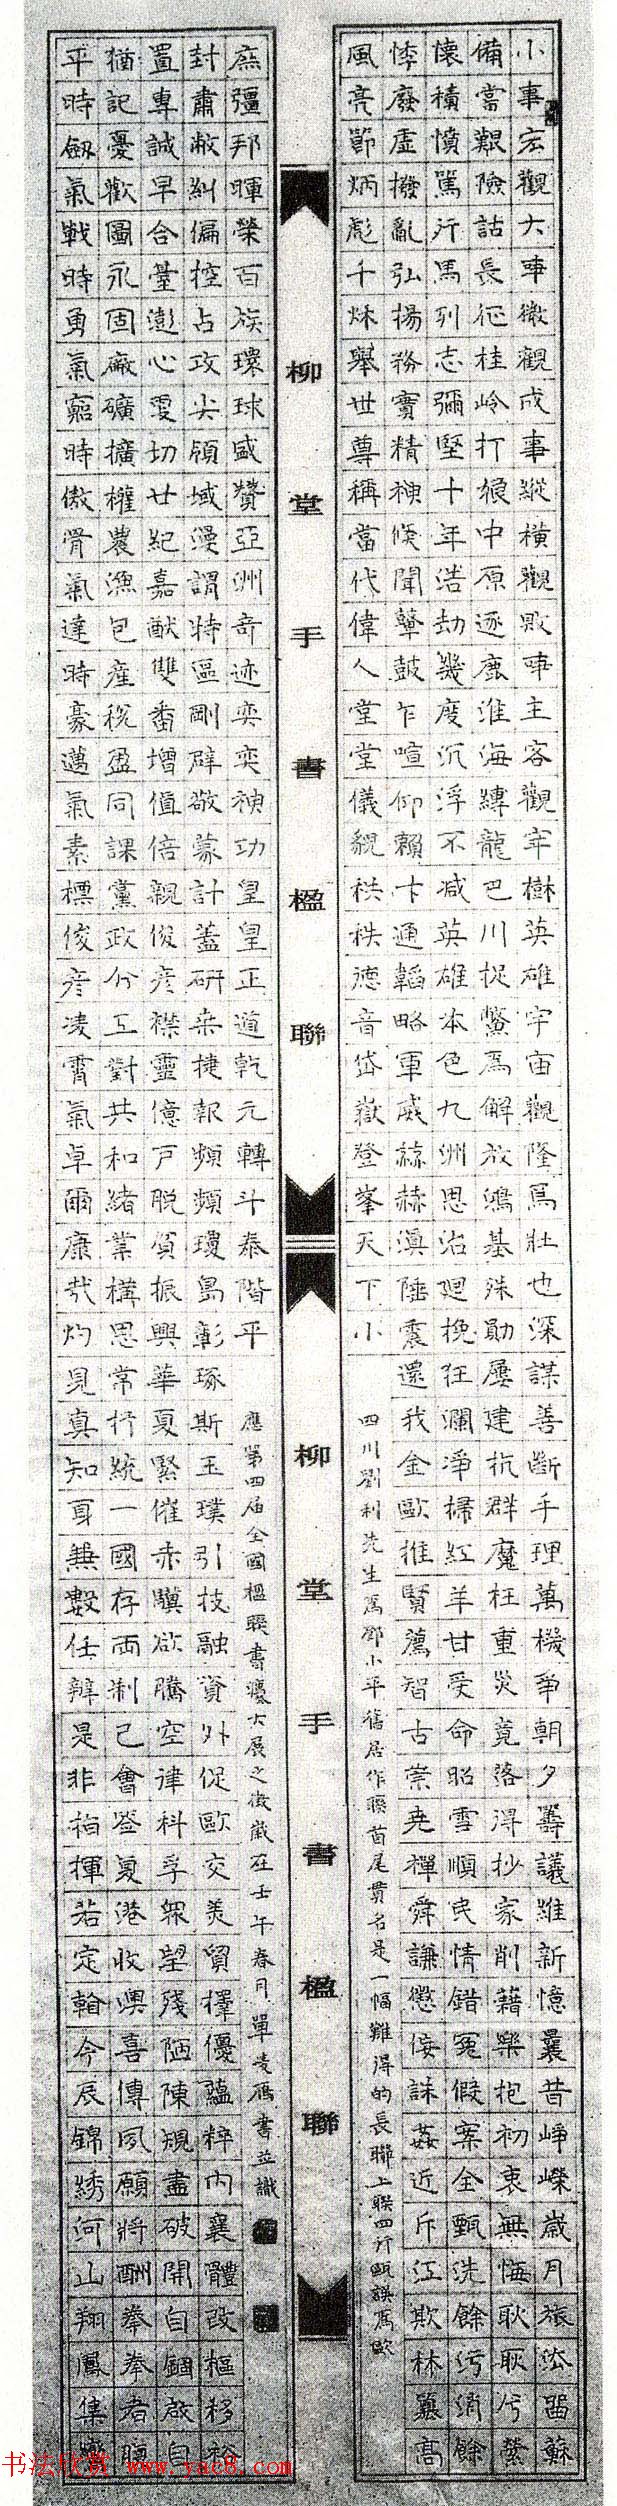 小事宏觀大事微觀成事縱橫觀敗事主客觀牢樹英雄宇宙觀隆焉壯也深謀善斷手理萬機爭朝夕籌議維新憶曩昔崢嶸歲月旅法留蘇
備嘗艱險詰長征桂岭打狼中原逐鹿淮海縛龍巴川捉鱉爲解放鴻基殊勛屢建抗群魔枉重災竟落得抄家削藉樂抱初衷無悔耿耿兮縈
懷積憤篤行馬列志彌堅十年浩劫幾度沉浮不減英雄本色九洲思治迴挽狂瀾淨掃紅羊甘受命昭雪順民情錯冤假案全甄洗餘污消餘
悸廢虛撥亂弘揚務實精神倏聞鼙鼓乍喧仰賴卞通韜略軍威赫赫滇陲震還我金歐推賢薦智古崇堯禪舜謙懲佞誅姦近斥江欺林襄高
風亮節炳彪千秌舉世尊稱當代偉人堂堂儀貌栱秩德音岱嶽登峯天下小
四川劉利先生爲鄧小平舊居作聯首尾貫名是一幅難得的長聯上聯四行甌誤爲歐
柳堂手書楹聯
柳堂手書楹聯
庶彊邦暉榮百族環球盛贊亞洲奇迹奕奕神功皇皇正道乾元轉斗泰階平
封肅敝糾偏控占攻尖領域漫謂特區剛辟敬蒙計蓋研桒捷報頻頻瓊島彰琢斯玉璞引技融資外促歐交美貿擇優蘊粹內襄體改樞移裕
置專誠早合臺澎心更切廿紀嘉猷雙番增值倍親俊彦襟靈億戶脱貧振興華夏緊催赤驥欲騰空律科孚衆望殘陋陳規盡破開自錮啟自
猶記憂歡圖永固廠礦擴權農漁包產稅盈同課黨政分工對共和緒業構思常抒統一國存兩制己會簽夏港收澳喜傳夙願將酬拳拳者臆
平時劒氣戰時勇氣窮時傲骨氣達時豪邁氣素標俊彦凌霄氣卓爾康哉灼見真知耳無數任辨是非指揮若定翰今辰錦綉河山翔鳳集鸞
應第四届全國楹聯書灋大展之徵歲在壬午春月單
書並識
书法欣赏 www.yac8.com